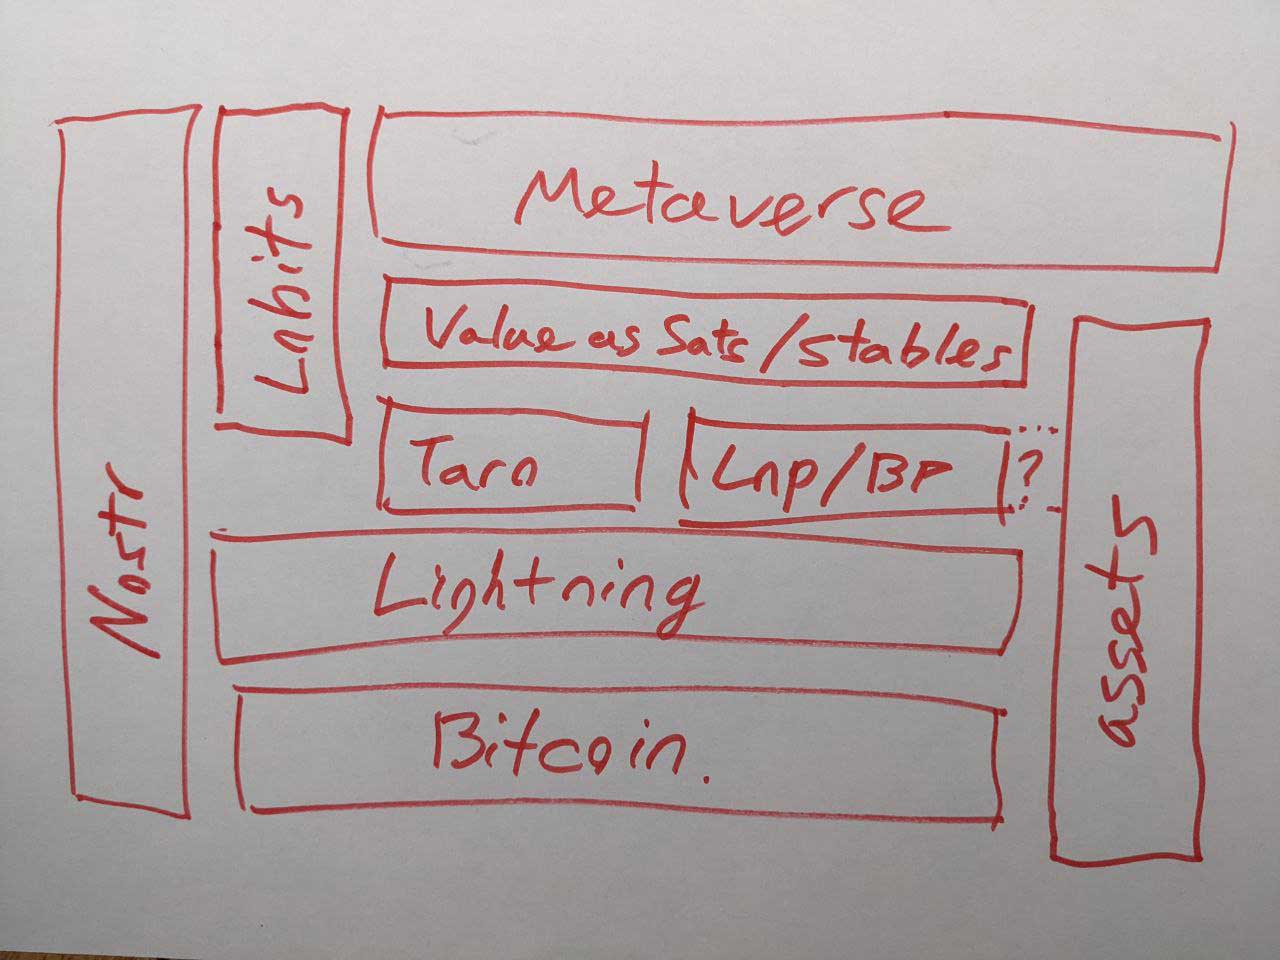 Nostr
Lnbits
Metaverse
Value as Sats/stables
Taro
Lnp/BP
?
Lightning
Bitcoin.
assets